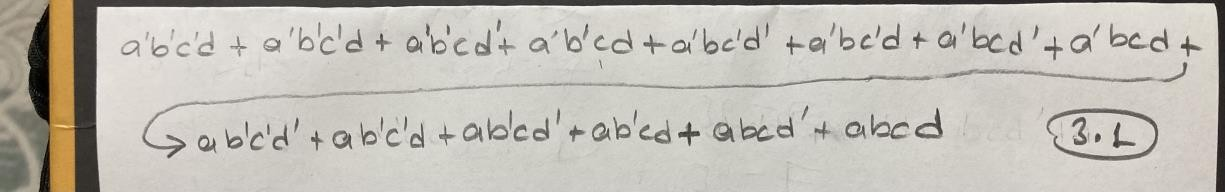 a'b'c'd + a'b'c'd + a'b'cd' + a'b'cd + a'bc'd' + a'bc'd + a'bcd' + a'bcd +
ab'c'd' + ab'c'd + ab'cd' + ab'cd + abcd' + abcd 3.1